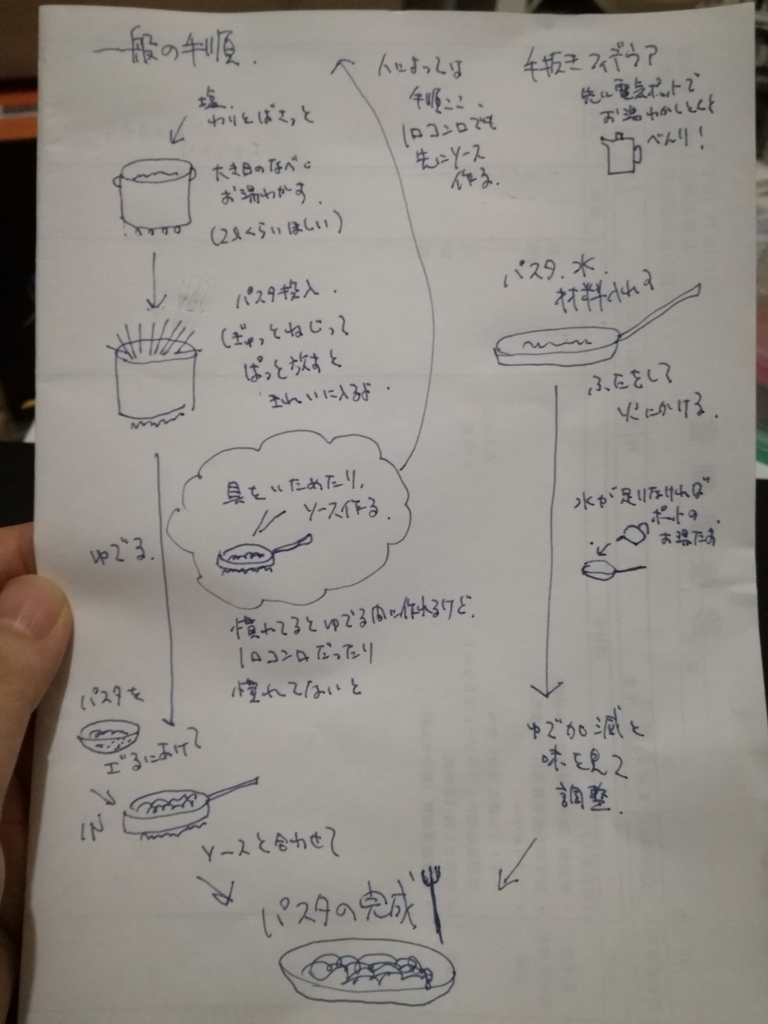 一般の手順.
塩.
わりとばさっと
大き目のなべに
お湯わかす
(2ℓくらいほしい)
パスタ投入.
ぎゅっとねじって
ぱっと放すと
きれいに入るよ.
具をいためたり,
ソース作る.
ゆでる.
慣れてるとゆでる間に作れるけど.
1口コンロだったり
慣れてないと
人によっては
手順ここ.
1口コンロでも
先にソース
作る.
パスタを
ざるにあけて
IN
ソースと合わせて
手抜きフィデウア
先に電気ポットで
お湯わかしとくと
べんり!
パスタ.水.
材料入れて
ふたをして
火にかける.
水が足りなければ
ポットの
お湯たす
ゆで加減と
味を見て
調整.
パスタの完成